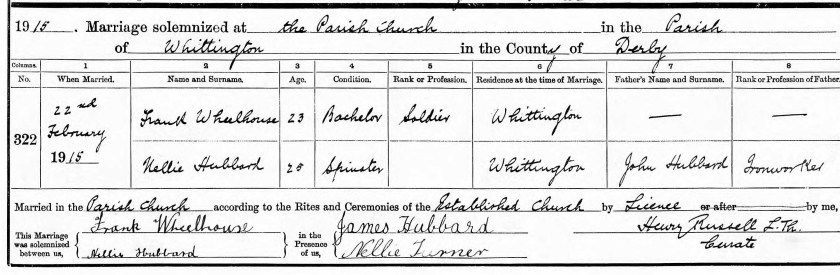 1915. Marriage solemnized at the Parish Church in the Parish
of Whittington in the County of Derby
Columns. 1 2 3 4 5 6 7 8
No. When Married. Name and Surname. Age. Condition. Rank or Profession. Residence at the time of Marriage. Father's Name and Surname. Rank or Profession of Father.
322 22nd February 1915 Frank Wheelhouse 23 Bachelor Soldier Whittington — —
Nellie Hubbard 25 Spinster Whittington John Hubbard Ironworker
Married in the Parish Church according to the Rites and Ceremonies of the Established Church by Licence or after by me,
This Marriage was solemnized between us, Frank Wheelhouse in the Presence of us, James Hubbard Henry Russell L.Th.
Nellie Hubbard Nellie Turner Curate